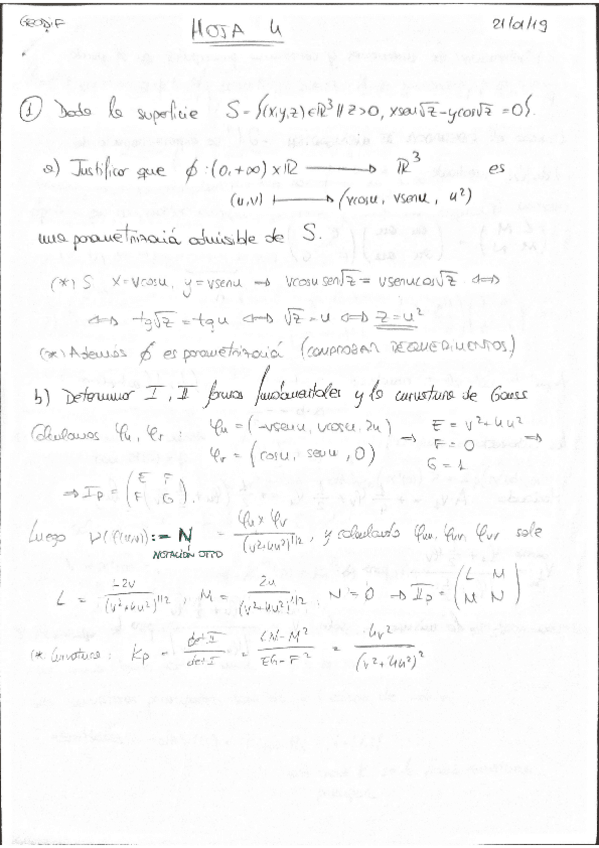 GEODIF HOJA 4 21/01/19
① Dada la superficie S = {(x,y,z)∈ℝ³ // z>0, xsen√z - ycos√z = 0}.
a) Justificar que ϕ: (0,+∞) x ℝ ⟶ ℝ³ es
(u,v) ⟼ (vcosu, vsenu, u²)
una parametrizació admisible de S.
(*) S x=vcosu, y=vsenu → vcosu sen√z = vsenucos√z ⟺
⟺ tg√z = tgu ⟺ √z = u ⟺ z = u²
(*) Además ϕ es parametrizació (COMPROBAR REQUERIMIENTOS)
b) Determinar I, II formas fundamentales y la curvatura de Gauss
Calculamos φu, φv : φu = (-vsenu, vcosu, 2u) ⟹ E = v²+4u² ⟹
φv = (cosu, senu, 0) F = 0
G = 1
⟹ Ip = (E F
F G)
Luego ν(φ(u,v)) := N = φu x φv / (v²+4u²)^1/2, y calculando φuu, φuv, φvv sale
NOTACIÓN OTTO
L = -2v / (v²+4u²)^1/2, M = 2u / (v²+4u²)^1/2, N = 0 ⟹ IIp = (L M
M N)
(* Curvatura: Kp = detII / detI = LN-M² / EG-F² = -4v² / (v²+4u²)²